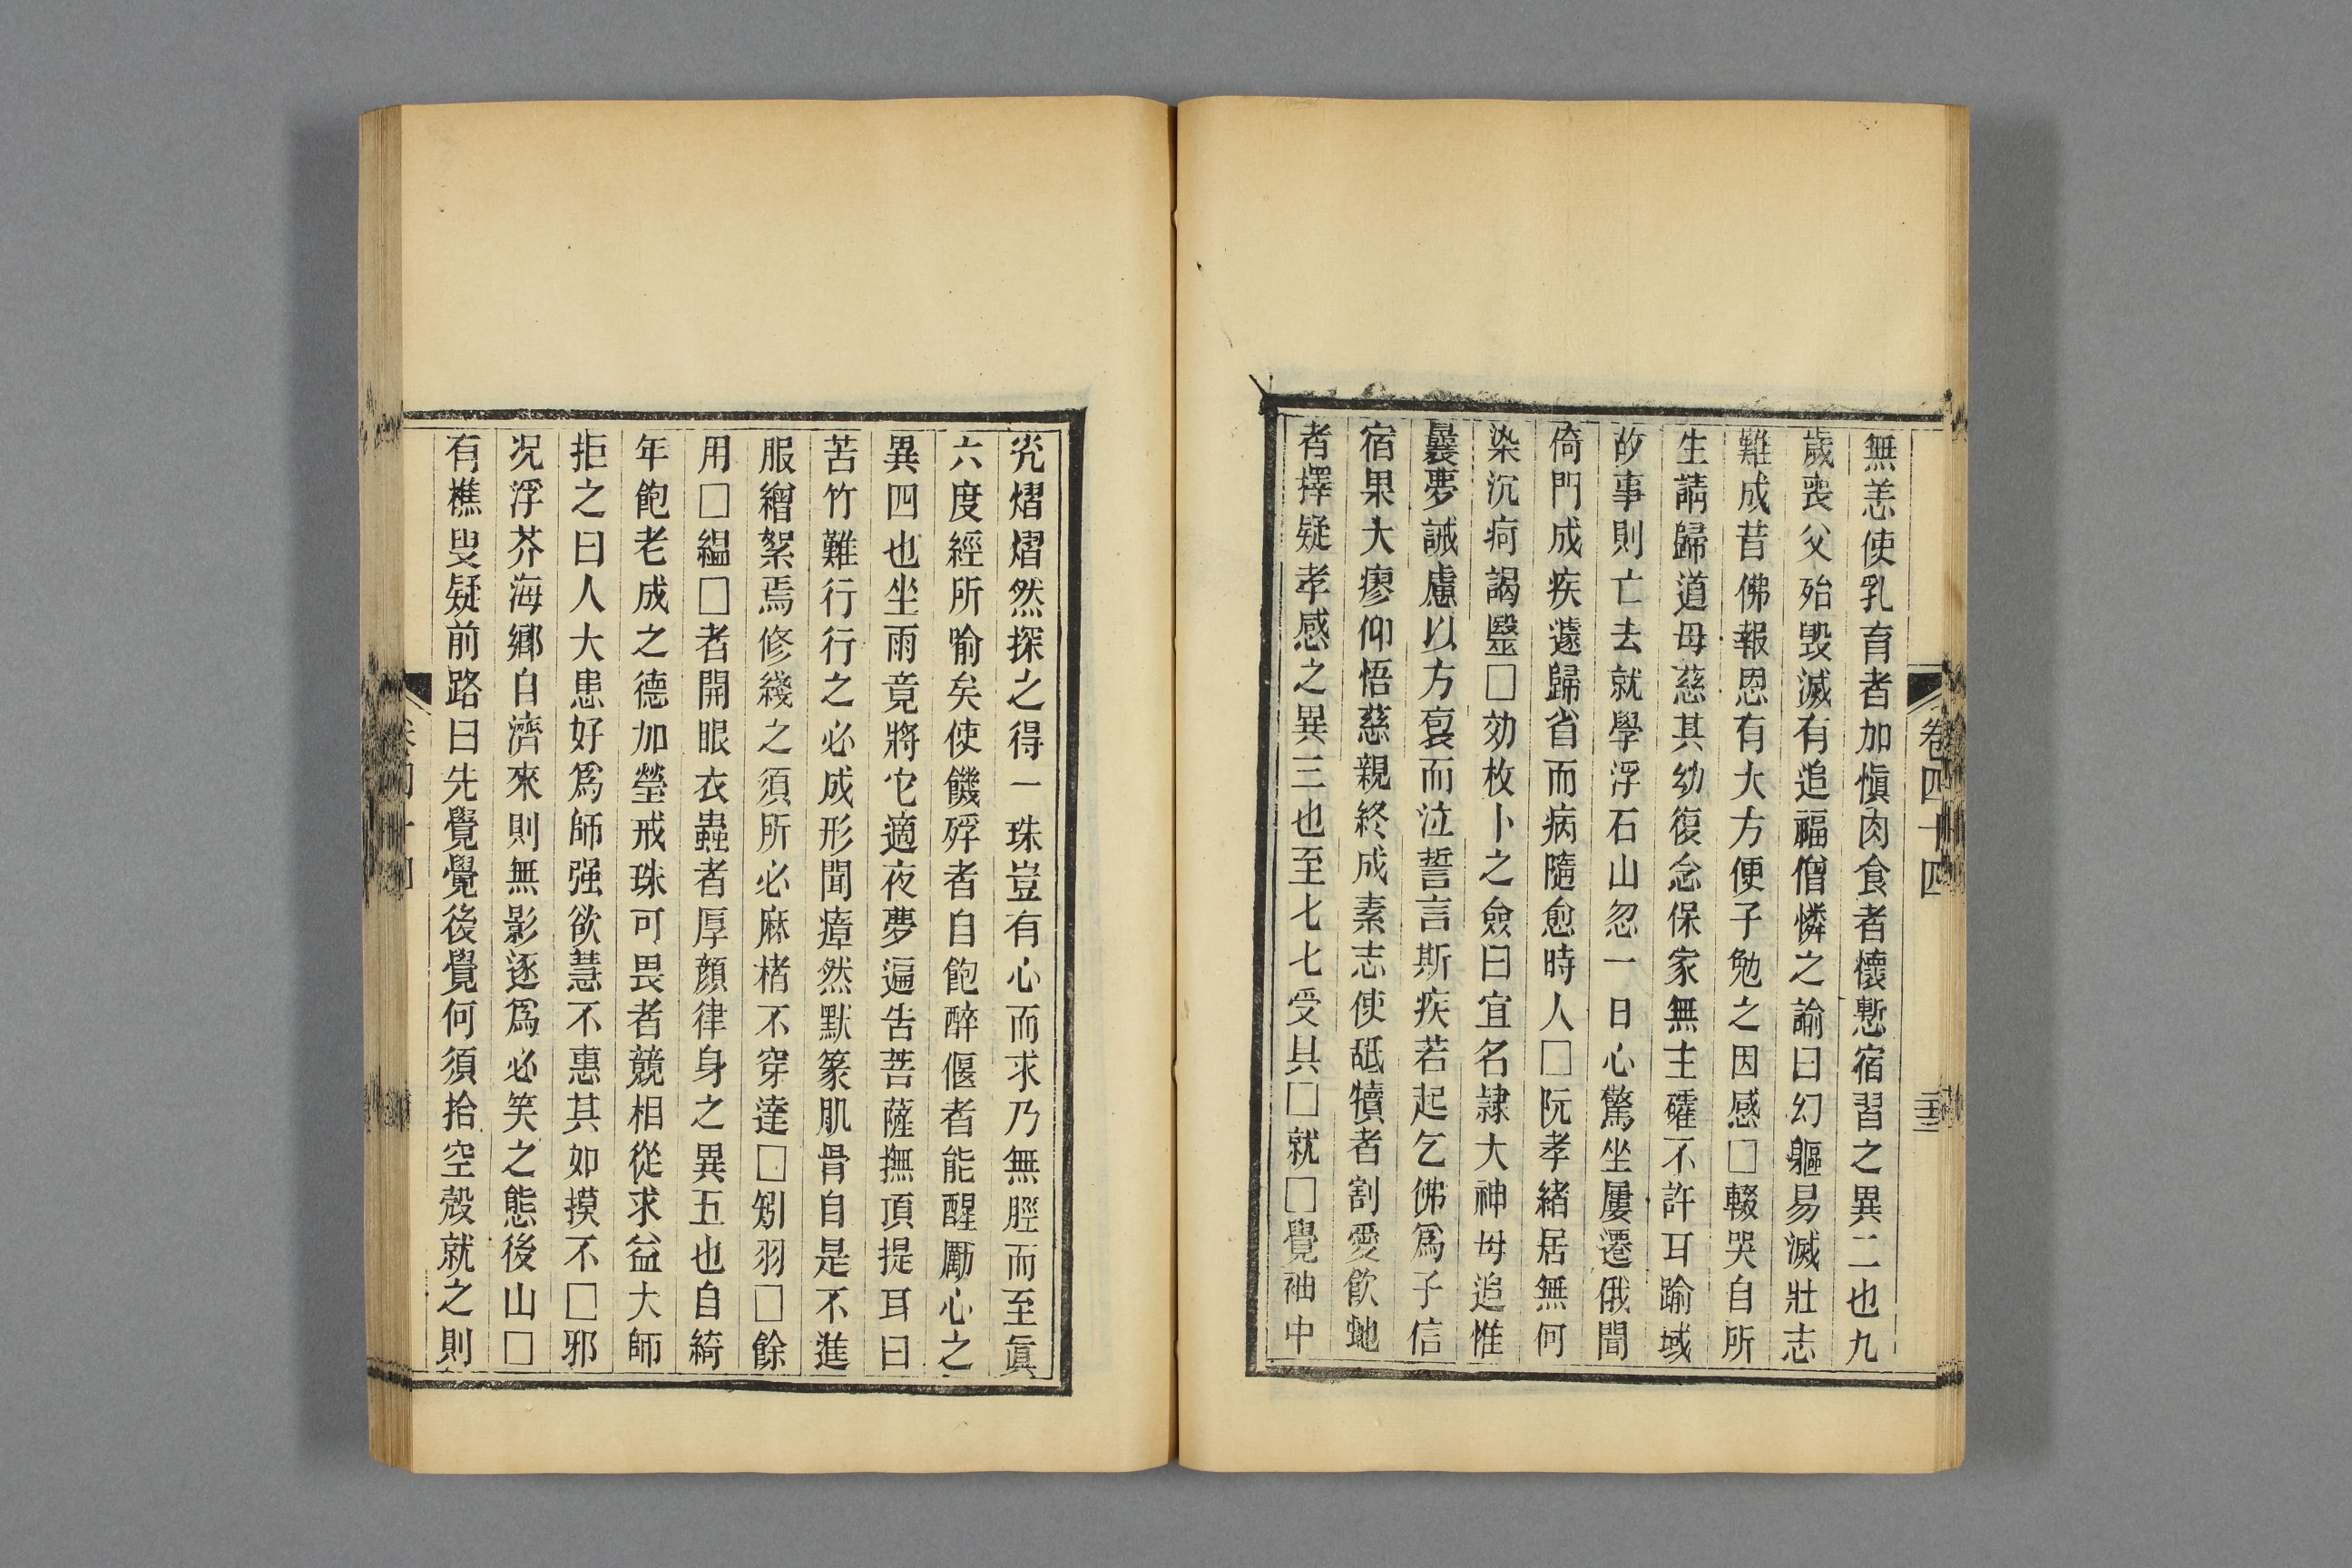 卷四十四
二十三
無恙使乳育者加愼肉食者懷慙宿習之異二也九
歲喪父殆毀滅有追福僧憐之諭曰幻軀易滅壯志
難成昔佛報恩有大方便子勉之因感□輟哭自所
生請歸道母慈其幼復念保家無主確不許耳踰域
故事則亡去就學浮石山忽一日心驚坐屢遷俄聞
倚門成疾遽歸省而病隨愈時人□阮孝緒居無何
染沉疴謁毉□効枚卜之僉曰宜名隷大神母追惟
曩夢誡慮以方裒而泣誓言斯疾若起乞佛爲子信
宿果大瘳仰悟慈親終成素志使舐犢者割愛飮虵
者擇疑孝感之異三也至七七受具□就□覺袖中
光熠熠然探之得一珠豈有心而求乃無脛而至眞
六度經所喻矣使饑殍者自飽醉偃者能醒勵心之
異四也坐雨竟將它適夜夢遍吿菩薩撫頂提耳曰
苦竹難行行之必成形聞瘴然默篆肌骨自是不進
服繒絮焉修綫之須所必麻楮不穿達□矧羽□餘
用□緼□者開眼衣蟲者厚顏律身之異五也自綺
年飽老成之德加瑩戒珠可畏者競相從求益大師
拒之曰人大患好爲師强欲慧不惠其如摸不□邪
况浮芥海鄕自濟來則無影逐爲必笑之態後山□
有樵叟疑前路曰先覺覺後覺何須拾空殼就之則